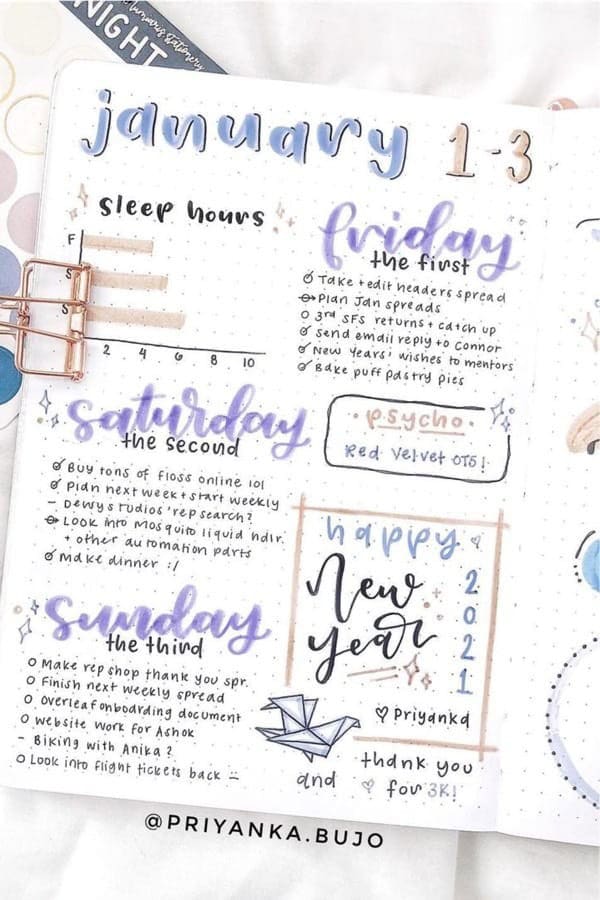 luminaris stationery
NIGHT
january 1-3
sleep hours
F
S
S
2 4 6 8 10
friday
the first
Take + edit headers spread
Plan Jan spreads
3rd SFS returns + catch up
Send email reply to Connor
New Years' wishes to mentors
Bake puff pastry pies
saturday
the second
Buy tons of floss online lol
Plan next week + start weekly
- Dewystudios' rep search?
Look into Mosquito liquid hndlr.
+ other automation parts
Make dinner :/
• psycho •
Red Velvet OT5!
sunday
the third
Make rep shop thank you spr.
Finish next weekly spread
Overleaf onboarding document
Website work for Ashok
- Biking with Anika?
Look into flight tickets back
happy
New
year
2021
♡ Priyanka
and
thank you
♡ for 3K!
@PRIYANKA.BUJO